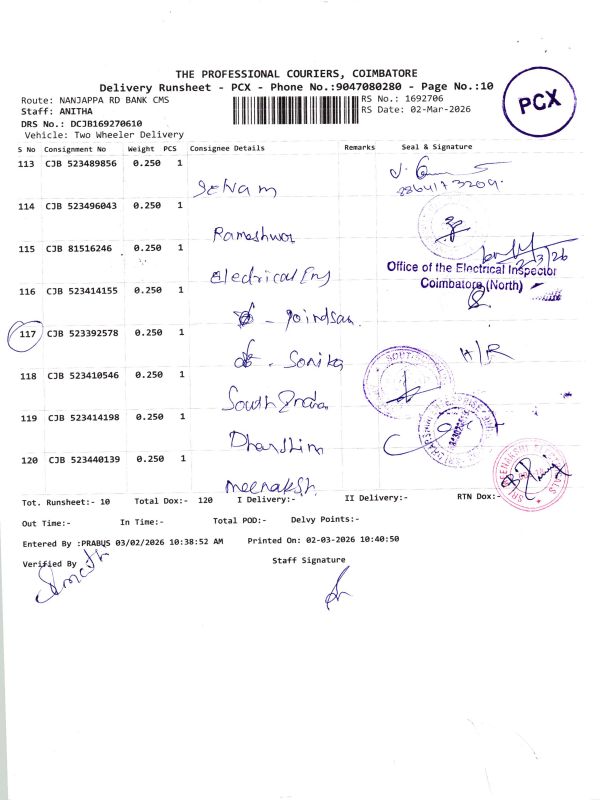 THE PROFESSIONAL COURIERS, COIMBATORE
Delivery Runsheet - PCX - Phone No.:9047080280 - Page No.:10
PCX
Route: NANJAPPA RD BANK CMS
RS No.: 1692706
Staff: ANITHA
RS Date: 02-Mar-2026
DRS No.: DCJB169270610
Vehicle: Two Wheeler Delivery
S No Consignment No Weight PCS Consignee Details Remarks Seal & Signature
113 CJB 523489856 0.250 1
114 CJB 523496043 0.250 1
Rameshwar
115 CJB 81516246 0.250 1
Electrical
2/3/26
Office of the Electrical Inspector
Coimbatore (North)
116 CJB 523414155 0.250 1
117 CJB 523392578 0.250 1
H/R
118 CJB 523410546 0.250 1
South India
119 CJB 523414198 0.250 1
120 CJB 523440139 0.250 1
Meenakshi
Tot. Runsheet:- 10 Total Dox:- 120 I Delivery:- II Delivery:- RTN Dox:-
Out Time:- In Time:- Total POD:- Delvy Points:-
Entered By :PRABUS 03/02/2026 10:38:52 AM Printed On: 02-03-2026 10:40:50
Verified By Staff Signature